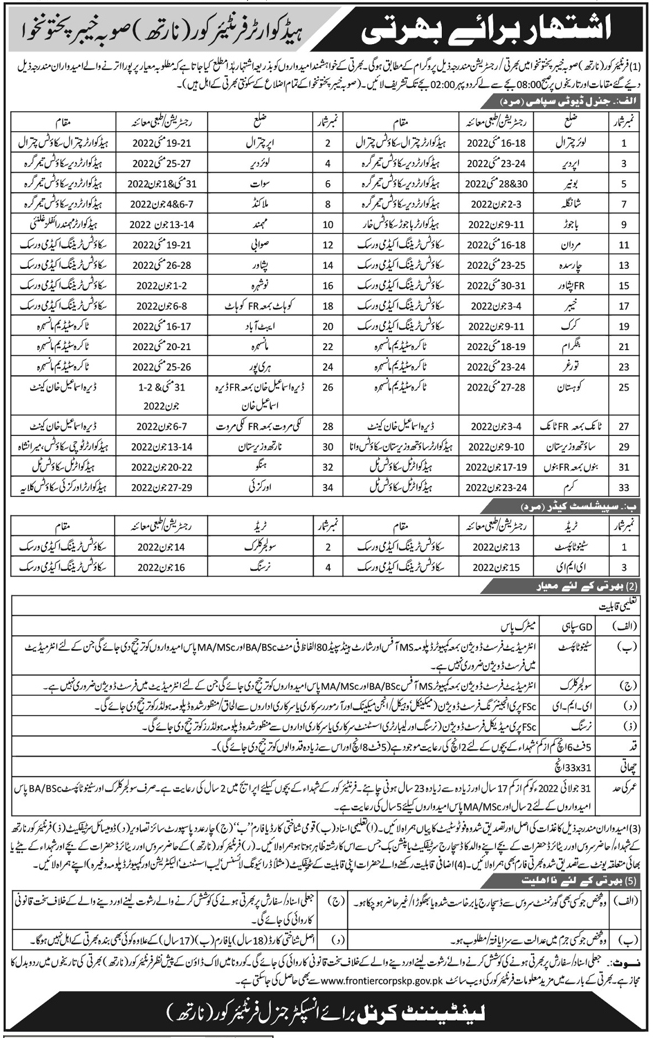 اشتہار برائے بھرتی
ہیڈ کوارٹر فرنٹیئر کور (نارتھ) صوبہ خیبر پختونخوا
(1) فرنٹیئر کور (نارتھ) صوبہ خیبر پختونخوا میں بھرتی / رجسٹریشن مندرجہ ذیل پروگرام کے مطابق ہوگی۔ بھرتی کے خواہشمند امیدواروں کو بذریعہ اشتہار ہذا مطلع کیا جاتا ہے کہ مطلوبہ معیار پر پورا اترنے والے امیدواران مندرجہ ذیل
دیئے گئے مقامات اور تاریخوں پر صبح 08:00 بجے سے لے کر دوپہر 02:00 بجے تک تشریف لائیں۔ (صوبہ خیبر پختونخوا کے تمام اضلاع کے سکونتی بھرتی کے اہل ہیں۔)
الف:۔ جنرل ڈیوٹی سپاہی (مرد)
نمبر شمار ضلع رجسٹریشن/طبی معائنہ مقام نمبر شمار ضلع رجسٹریشن/طبی معائنہ مقام
1 لوئر چترال 16-18 مئی 2022 ہیڈ کوارٹر چترال سکاؤٹس چترال 2 اپر چترال 19-21 مئی 2022 ہیڈ کوارٹر چترال سکاؤٹس چترال
3 اپر دیر 23-24 مئی 2022 ہیڈ کوارٹر دیر سکاؤٹس تیمرگرہ 4 لوئر دیر 25-27 مئی 2022 ہیڈ کوارٹر دیر سکاؤٹس تیمرگرہ
5 بونیر 28&30 مئی 2022 ہیڈ کوارٹر دیر سکاؤٹس تیمرگرہ 6 سوات 31 مئی & 1 جون 2022 ہیڈ کوارٹر دیر سکاؤٹس تیمرگرہ
7 شانگلہ 2-3 جون 2022 ہیڈ کوارٹر دیر سکاؤٹس تیمرگرہ 8 ملاکنڈ 4&6-7 جون 2022 ہیڈ کوارٹر دیر سکاؤٹس تیمرگرہ
9 باجوڑ 9-11 جون 2022 ہیڈ کوارٹر باجوڑ سکاؤٹس خار 10 مہمند 13-14 جون 2022 ہیڈ کوارٹر مہمند رائفلز غلنئی
11 مردان 16-18 مئی 2022 سکاؤٹس ٹریننگ اکیڈمی ورسک 12 صوابی 19-21 مئی 2022 سکاؤٹس ٹریننگ اکیڈمی ورسک
13 چارسدہ 23-25 مئی 2022 سکاؤٹس ٹریننگ اکیڈمی ورسک 14 پشاور 26-28 مئی 2022 سکاؤٹس ٹریننگ اکیڈمی ورسک
15 FR پشاور 30-31 مئی 2022 سکاؤٹس ٹریننگ اکیڈمی ورسک 16 نوشہرہ 1-2 جون 2022 سکاؤٹس ٹریننگ اکیڈمی ورسک
17 خیبر 3-4 جون 2022 سکاؤٹس ٹریننگ اکیڈمی ورسک 18 کوہاٹ بمعہ FR کوہاٹ 6-8 جون 2022 سکاؤٹس ٹریننگ اکیڈمی ورسک
19 کرک 9-11 جون 2022 سکاؤٹس ٹریننگ اکیڈمی ورسک 20 ایبٹ آباد 16-17 مئی 2022 ٹاکرہ سٹیڈیم مانسہرہ
21 بٹگرام 18-19 مئی 2022 ٹاکرہ سٹیڈیم مانسہرہ 22 مانسہرہ 20-21 مئی 2022 ٹاکرہ سٹیڈیم مانسہرہ
23 تورغر 23-24 مئی 2022 ٹاکرہ سٹیڈیم مانسہرہ 24 ہری پور 25-26 مئی 2022 ٹاکرہ سٹیڈیم مانسہرہ
25 کوہستان 27-28 مئی 2022 ٹاکرہ سٹیڈیم مانسہرہ 26 ڈیرہ اسماعیل خان بمعہ FR ڈیرہ 31 مئی & 1-2 ڈیرہ اسماعیل خان کینٹ
اسماعیل خان جون 2022
27 ٹانک بمعہ FR ٹانک 3-4 جون 2022 ڈیرہ اسماعیل خان کینٹ 28 لکی مروت بمعہ FR لکی مروت 6-7 جون 2022 ڈیرہ اسماعیل خان کینٹ
29 ساؤتھ وزیرستان 9-10 جون 2022 ہیڈ کوارٹر ساؤتھ وزیرستان سکاؤٹس وانا 30 نارتھ وزیرستان 13-14 جون 2022 ہیڈ کوارٹر ٹوچی سکاؤٹس، میرانشاہ
31 بنوں بمعہ FR بنوں 17-19 جون 2022 ہیڈ کوارٹر ٹل سکاؤٹس ٹل 32 ہنگو 20-22 جون 2022 ہیڈ کوارٹر ٹل سکاؤٹس ٹل
33 کرم 23-24 جون 2022 ہیڈ کوارٹر ٹل سکاؤٹس ٹل 34 اورکزئی 27-29 جون 2022 ہیڈ کوارٹر اورکزئی سکاؤٹس کلایہ
ب:۔ سپیشلسٹ کیڈر (مرد)
نمبر شمار ٹریڈ رجسٹریشن/طبی معائنہ مقام نمبر شمار ٹریڈ رجسٹریشن/طبی معائنہ مقام
1 سٹینو ٹائپسٹ 13 جون 2022 سکاؤٹس ٹریننگ اکیڈمی ورسک 2 سولجر کلرک 14 جون 2022 سکاؤٹس ٹریننگ اکیڈمی ورسک
3 ای ایم ای 15 جون 2022 سکاؤٹس ٹریننگ اکیڈمی ورسک 4 نرسنگ 16 جون 2022 سکاؤٹس ٹریننگ اکیڈمی ورسک
(2) بھرتی کے لئے معیار
تعلیمی قابلیت
(الف) GD سپاہی میٹرک پاس
(ب) سٹینو ٹائپسٹ انٹرمیڈیٹ فرسٹ ڈویژن بمعہ کمپیوٹر ڈپلومہ MS آفس اور شارٹ ہینڈ سپیڈ 80 الفاظ فی منٹ BA/BSc اور MA/MSc پاس امیدواروں کو ترجیح دی جائے گی جن کے لئے انٹرمیڈیٹ
میں فرسٹ ڈویژن ضروری نہیں ہے۔
(ج) سولجر کلرک انٹرمیڈیٹ فرسٹ ڈویژن بمعہ کمپیوٹر MS آفس BA/BSc اور MA/MSc پاس امیدواروں کو ترجیح دی جائے گی جن کے لئے انٹرمیڈیٹ میں فرسٹ ڈویژن ضروری نہیں ہے۔
(د) ای۔ایم۔ای FSc پری انجینئرنگ فرسٹ ڈویژن (میکنیکل وہیکل/انجن میکینک اور آرمورر سرکاری یا سرکاری اداروں سے الحاق/منظور شدہ ڈپلومہ ہولڈرز کو ترجیح دی جائے گی۔
(ذ) نرسنگ FSc پری میڈیکل فرسٹ ڈویژن (نرسنگ اور لیبارٹری اسسٹنٹ سرکاری یا سرکاری اداروں سے منظور شدہ ڈپلومہ ہولڈرز کو ترجیح دی جائے گی۔
قد 5 فٹ 6 انچ کم از کم (شہداء کے بچوں کے لئے 2 انچ کی رعایت موجود ہے (5 فٹ 8 انچ اور اس سے زیادہ قد والوں کو ترجیح دی جائے گی)۔
چھاتی 33x31 انچ
عمر کی حد 31 جولائی 2022 کو کم از کم 17 سال اور زیادہ سے زیادہ 23 سال ہونی چاہئے۔ فرنٹیئر کور کے شہداء کے بچوں کیلئے اپر ایج میں 2 سال کی رعایت ہے۔ صرف سولجر کلرک اور سٹینو ٹائپسٹ BA/BSc پاس
امیدواروں کے لئے 2 سال اور MA/MSc پاس امیدواروں کیلئے 5 سال کی رعایت ہے۔
(3) امیدواران مندرجہ ذیل کاغذات کی اصل اور تصدیق شدہ فوٹو سٹیٹ کاپیاں ہمراہ لائیں۔ (ا) تعلیمی اسناد (ب) قومی شناختی کارڈ یا فارم "ب" (ج) چار عدد پاسپورٹ سائز تصاویر (د) ڈومیسائل سرٹیفکیٹ (ذ) فرنٹیئر کور نارتھ
کے شہداء/ حاضر سروس اور ریٹائرڈ حضرات کے بچے اپنے والد کا ڈسچارج سرٹیفکیٹ یا پنشن بک جس سے اس کا رشتہ ظاہر ہوتا ہو ہمراہ لائیں۔ (ر) فرنٹیئر کور (نارتھ) کے حاضر سروس اور ریٹائرڈ حضرات کے بچے اور شہداء کے بیٹے یا
بھائی متعلقہ یونٹ سے تصدیق شدہ بھرتی فارم بھی ہمراہ لائیں۔ (4) اضافی قابلیت رکھنے والے حضرات اپنی قابلیت کے سرٹیفکیٹ (مثلاً ڈرائیونگ لائسنس، لیب اسسٹنٹ، الیکٹریشن اور کمپیوٹر ڈپلومہ وغیرہ) اپنے ہمراہ لائیں۔
(5) بھرتی کے لئے نااہلیت
(الف) وہ شخص جو کسی بھی گورنمنٹ سروس سے ڈسچارج یا برخاست شدہ یا بھگوڑا/ غیر حاضر ہو چکا ہو۔ (ج) جعلی اسناد/ سفارش پر بھرتی ہونے کی کوشش کرنے والے، رشوت لینے اور دینے والے کے خلاف سخت قانونی
کاروائی کی جائے گی۔
(ب) وہ شخص جو کسی جرم میں عدالت سے سزا یافتہ/ مطلوب ہو۔ (د) اصل شناختی کارڈ (18 سال) یا فارم (ب) (17 سال) کے علاوہ کوئی بھی بندہ بھرتی کے اہل نہیں ہوگا۔
نوٹ:۔ جعلی اسناد/ سفارش پر بھرتی ہونے کی کوشش کرنے والے، رشوت لینے اور دینے والے کے خلاف سخت قانونی کاروائی کی جائے گی۔ کورونا میں لاک ڈاؤن کے پیش نظر فرنٹیئر کور (نارتھ) بھرتی کی تاریخوں میں ردوبدل کا
مجاز ہے۔ بھرتی کے بارے میں مزید معلومات فرنٹیئر کور کی ویب سائٹ www.frontiercorpskp.gov.pk سے بھی حاصل کی جا سکتی ہے۔
لیفٹیننٹ کرنل برائے انسپکٹر جنرل فرنٹیئر کور (نارتھ)